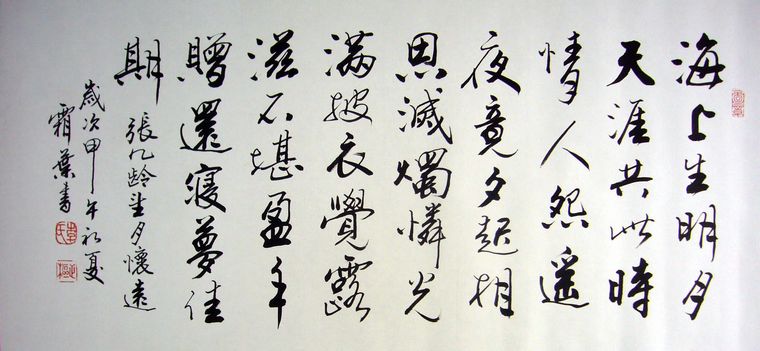 海上生明月
天涯共此時
情人怨遥
夜竟夕起相
思滅燭憐光
滿披衣覺露
滋不堪盈手
贈還寝夢佳
期
張九龄望月懷遠
歲次甲午初夏
霜葉書